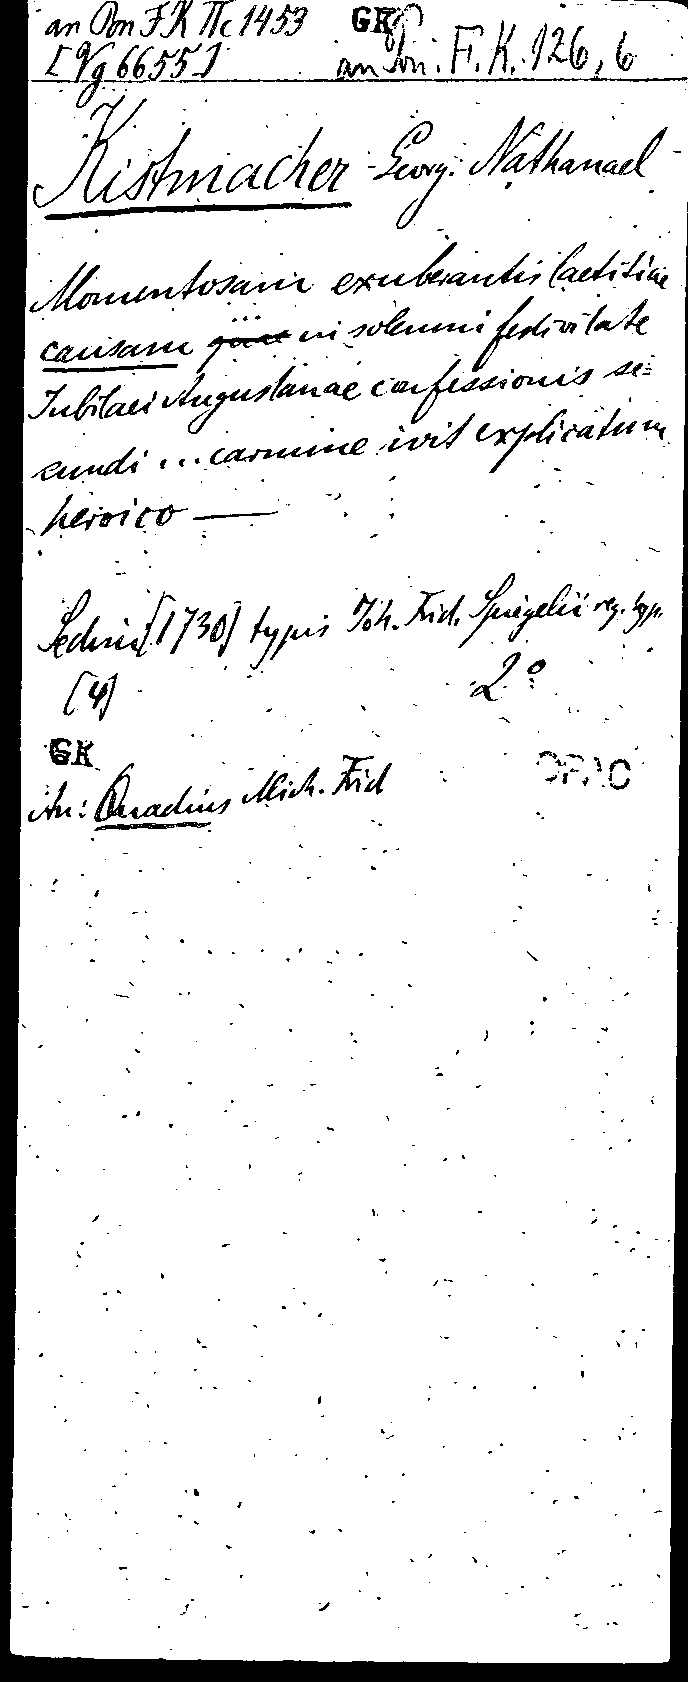 an Pon F.K IIc 1453 GK
[Vg 6655] an Pon. F. K. 126, 6
Kistmacher Georg. Nathanael
Momentosam exuberantis laetitiae
causam in solemni festivitate
Iubilaei Augustanae confessionis se=
cundi ... carmine ivit explicatum
heroico —
Sedini [1730] typis Joh. Frid. Spiegelii reg. typ.
[4] 2°
GK OPAC
An: Quadius Mich. Frid